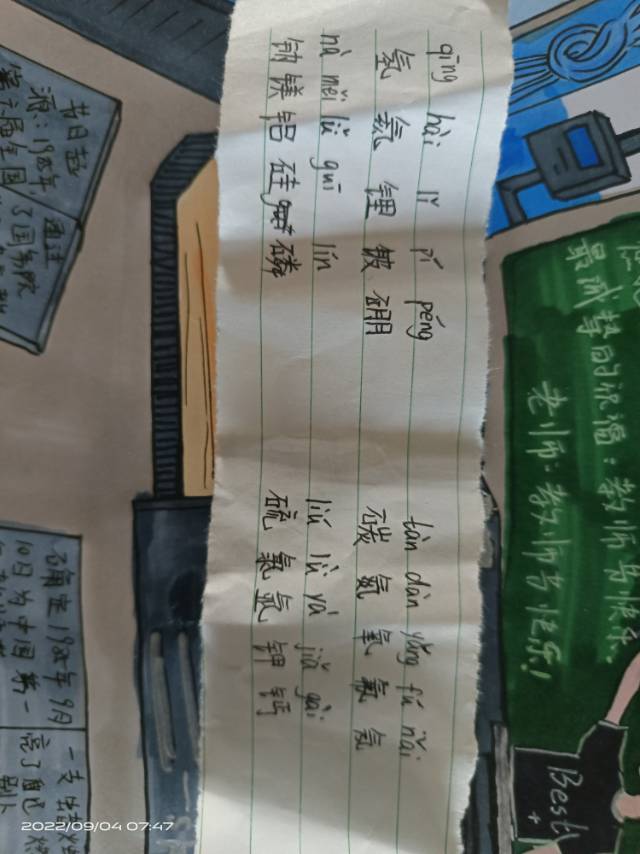 最诚挚的祝福：教师节快乐.
老师：教师节快乐!
Best
+
qīng hài lǐ pí péng tàn dàn yǎng fú nǎi
氢 氦 锂 铍 硼 碳 氮 氧 氟 氖
nà měi lǚ guī lín liú lǜ yà jiǎ gài
钠 镁 铝 硅 磷 硫 氯 氩 钾 钙
节日起
源：1985年
第六届全国
通过
了国务院
确定1985年9月
10日为中国第一
一支
亮了自己
2022/09/04 07:47